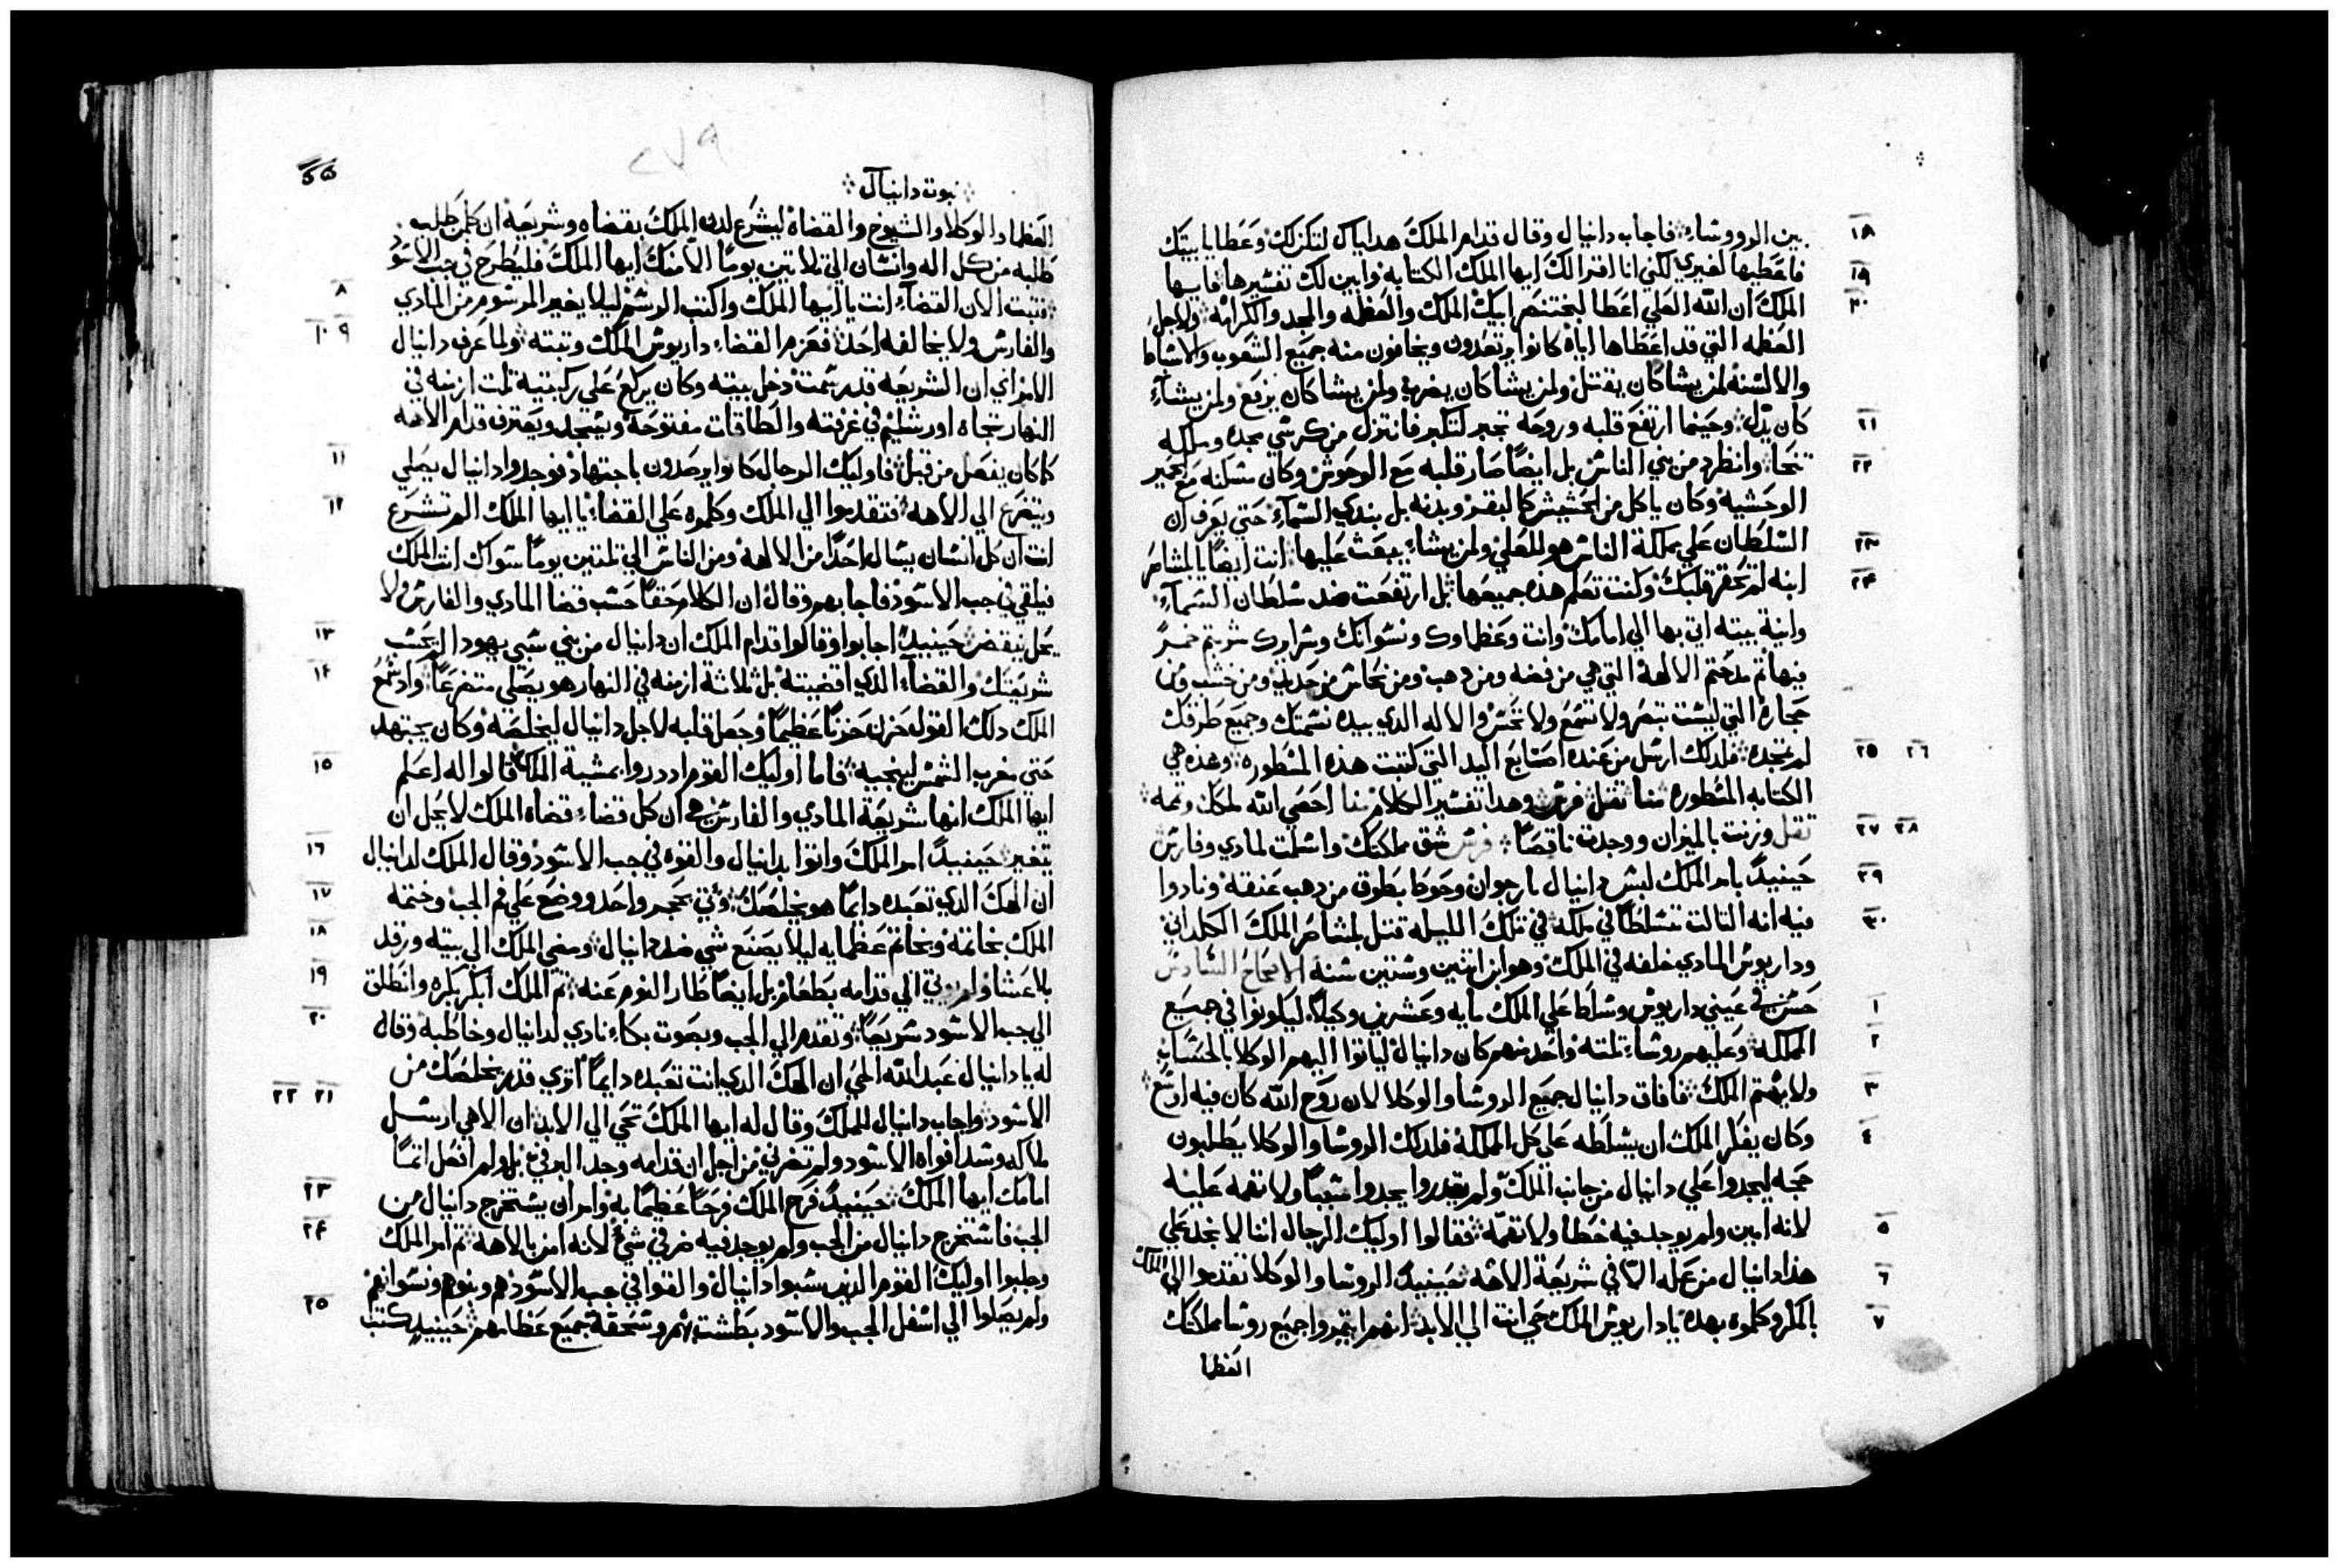 ١٨ بين الرووشاء فاجاب دانيال وقال قدام الملك هداياك لتكن لك وعطايا بيتك
١٩ فاعطيها لغيري لكني انا اقرا لك ايها الملك الكتابه وابين لك تفسيرها فايها
٢٠ الملك ان الله العلي اعطا لبختنصر ابيك الملك والعظمه والمجد والكرامه ولاجل
العظمه التي قد اعطاها اياه كانوا يرتعدون ويخافون منه جميع الشعوب والاسباط
والالسنه لمن يشا كان يقتل ولمن يشا كان يضرب ولمن يشا كان يرفع ولمن يشاء
٢١ كان يذل وحينما ارتفع قلبه وروحه تجبر لتكبر فانتزل من كرسي مجده وملكه
٢٢ تنحا وانطرد من بني الناس بل ايضا صار قلبه مع الوحوش وكان مسكنه مع حمير
الوحشيه وكان ياكل من الحشيش كالبقر وبدنه بل بندي السماء حتي يعرف ان
٢٣ السلطان علي مملكة الناس هو للعلي ولمن يشاء يبعث عليها انت ايضا يا بلشاصر
٢٤ ابنه لم تحقر قلبك وكنت تعلم هذه جميعها بل ارتفعت ضد سلطان السماء
وانية بيته اتي بها الي امامك وانت وعظماوك ونسوانك وسراريك شربتم خمر
فيها ثم مدحتم الالهة التي هي من فضه ومن دهب ومن نحاس من حديد ومن خشب ومن
حجارة التي ليست تبصر ولا تسمع ولا تحس والاله الذي بيده نسمتك وجميع طرقك
٢٥ ٢٦ لم تمجده فلدلك ارسل من عنده اصابع اليد التي كتبت هذه المسطوره وهذه هي
الكتابه المسطوره منا تقل فرس وهدا تفسير الكلام منا احصي الله لملكك وتمه
٢٧ ٢٨ تقل وزنت بالميزان ووجدت ناقصا فرس شق مملكتك واسلمت لمادي وفارس
٢٩ حينيدا بامر الملك لبس دانيال بارجوان وحوط بطوق من دهب عنقه ونادوا
٣٠ فيه انه التالت متسلطا في ملكه في تلك الليله قتل بلشاصر الملك الكلداني
وداريوس المادي خلفه في الملك وهو ابن اتنين وستين سنه الاصحاح السادس
١ حسن في عيني داريوس وسلط علي الملك مايه وعشرين وكيلا ليكونوا في جميع
٢ المملكه وعليهم روساء تلته واحد منهم كان دانيال لياتوا اليهم الوكلا بالحساب
٣ ولا يهتم الملك فافاق دانيال جميع الروسا والوكلا لان روح الله كان فيه اوسع
٤ وكان يفكر الملك ان يسلطه علي كل المملكة فلدلك الروسا والوكلا يطلبون
حجه ليجدوا علي دانيال من جانب الملك ولم يقدروا يجدوا سببا ولا تهمه عليه
٥ لانه امين ولم يوجد فيه خطا ولا تهمه فقالوا اوليك الرجال اننا لا نجد علي
٦ هذا دانيال من عله الا في شريعة الاهه حينيد الروسا والوكلا تقدموا الي الملك
٧ بالمكر وكلموه بهده يا داريوس الملك حي انت الي الابد انهم ايتمروا جميع روسا مملكتك
العظما
٢٧٩
نبوة دانيال
العظما والوكلا والشيوخ والقضاة ليشرع لدن الملك بقضاه وشريعة ان كل من طلب
طلبه من كل اله وانسان الي تلاتين يوما الا منك ايها الملك فليطرح في جب الاسود
٨ فتبت الان القضاء انت يا ايها الملك واكتب الرسم ليلا يغير المرسوم من المادي
٩ ١٠ والفارس ولا يخالفه احد فعزم القضاء داريوس الملك وتبته ولما عرف دانيال
الامر اي ان الشريعه قد رسمت دخل بيته وكان يركع علي ركبتيه تلت ازمنه في
النهار تجاه اورشليم في غرفته والطاقات مفتوحة ويسجد ويعترف قدام الاهه
١١ كما كان يفعل من قبل فاوليك الرجال كانوا يرصدون باجتهاد فوجدوا دانيال يصلي
١٢ ويتضرع الي الاهه فتقدموا الي الملك وكلموه علي القضاء يا ايها الملك الم تشرع
انت ان كل انسان يسال احدا من الالهة ومن الناس الي تلتين يوما سواك انت الملك
فيلقي في جب الاسود فاجابهم وقال ان الكلام حقا حسب قضا المادي والفارس ولا
١٣ يحل ينقض حينيد اجابوا وقالوا قدام الملك ان دانيال من بني سبي يهودا لم يحسب
١٤ شريعتك والقضاء الذي اقضيته بل ثلاثة ازمنه في النهار هو يصلي متضرعا واد سمع
الملك دلك القول حزن حزنا عظيما وجعل قلبه لاجل دانيال ليخلصه وكان يجتهد
١٥ حتي مغرب الشمس لينجيه فاما اوليك القوم اد دروا بمشية الملك قالوا له اعلم
ايها الملك انها شريعة المادي والفارس هي ان كل قضاء قضاه الملك لا يحل ان
١٦ يتغير حينيدا امر الملك واتوا بدانيال والقوه في جب الاسود وقال الملك لدانيال
١٧ ان الهك الدي تعبده دايما هو يخلصك وتي بحجر واحد ووضع علي فم الجب وختمه
١٨ الملك بخاتمه وبخاتم عظمايه ليلا يصنع شي ضد دانيال ومضي الملك الي بيته ورقد
١٩ بلا عشا ولم يوتي الي قدامه بطعام بل ايضا طار النوم عنه تم الملك ابكر بكره وانطلق
٢٠ الي جب الاسود سريعا وتقدم الي الجب وبصوت بكاء نادي لدانيال وخاطبه وقال
له يا دانيال عبد الله الحي ان الهك الدي انت تعبده دايما اتري قدر يخلصك من
٢١ ٢٢ الاسود واجاب دانيال للملك وقال له ايها الملك تحي الي الابد ان الاهي ارسل
ملاكه وسد افواه الاسود ولم تضرني من اجل ان قدامه وجد البر في بل ولم افعل اتما
٢٣ امامك ايها الملك حينيد فرح الملك فرحا عظيما به وامر ان يستخرج دانيال من
٢٤ الجب فاستخرج دانيال من الجب ولم يوجد فيه ضر في شي لانه امن بالاهه تم امر الملك
وجلبوا اوليك القوم الدين سبوا دانيال والقوا في جب الاسود هم وبنوهم ونسوانهم
٢٥ ولم يصلوا الي اسفل الجب والاسود بطشت بهم وسحقة جميع عظامهم حينيد كتب